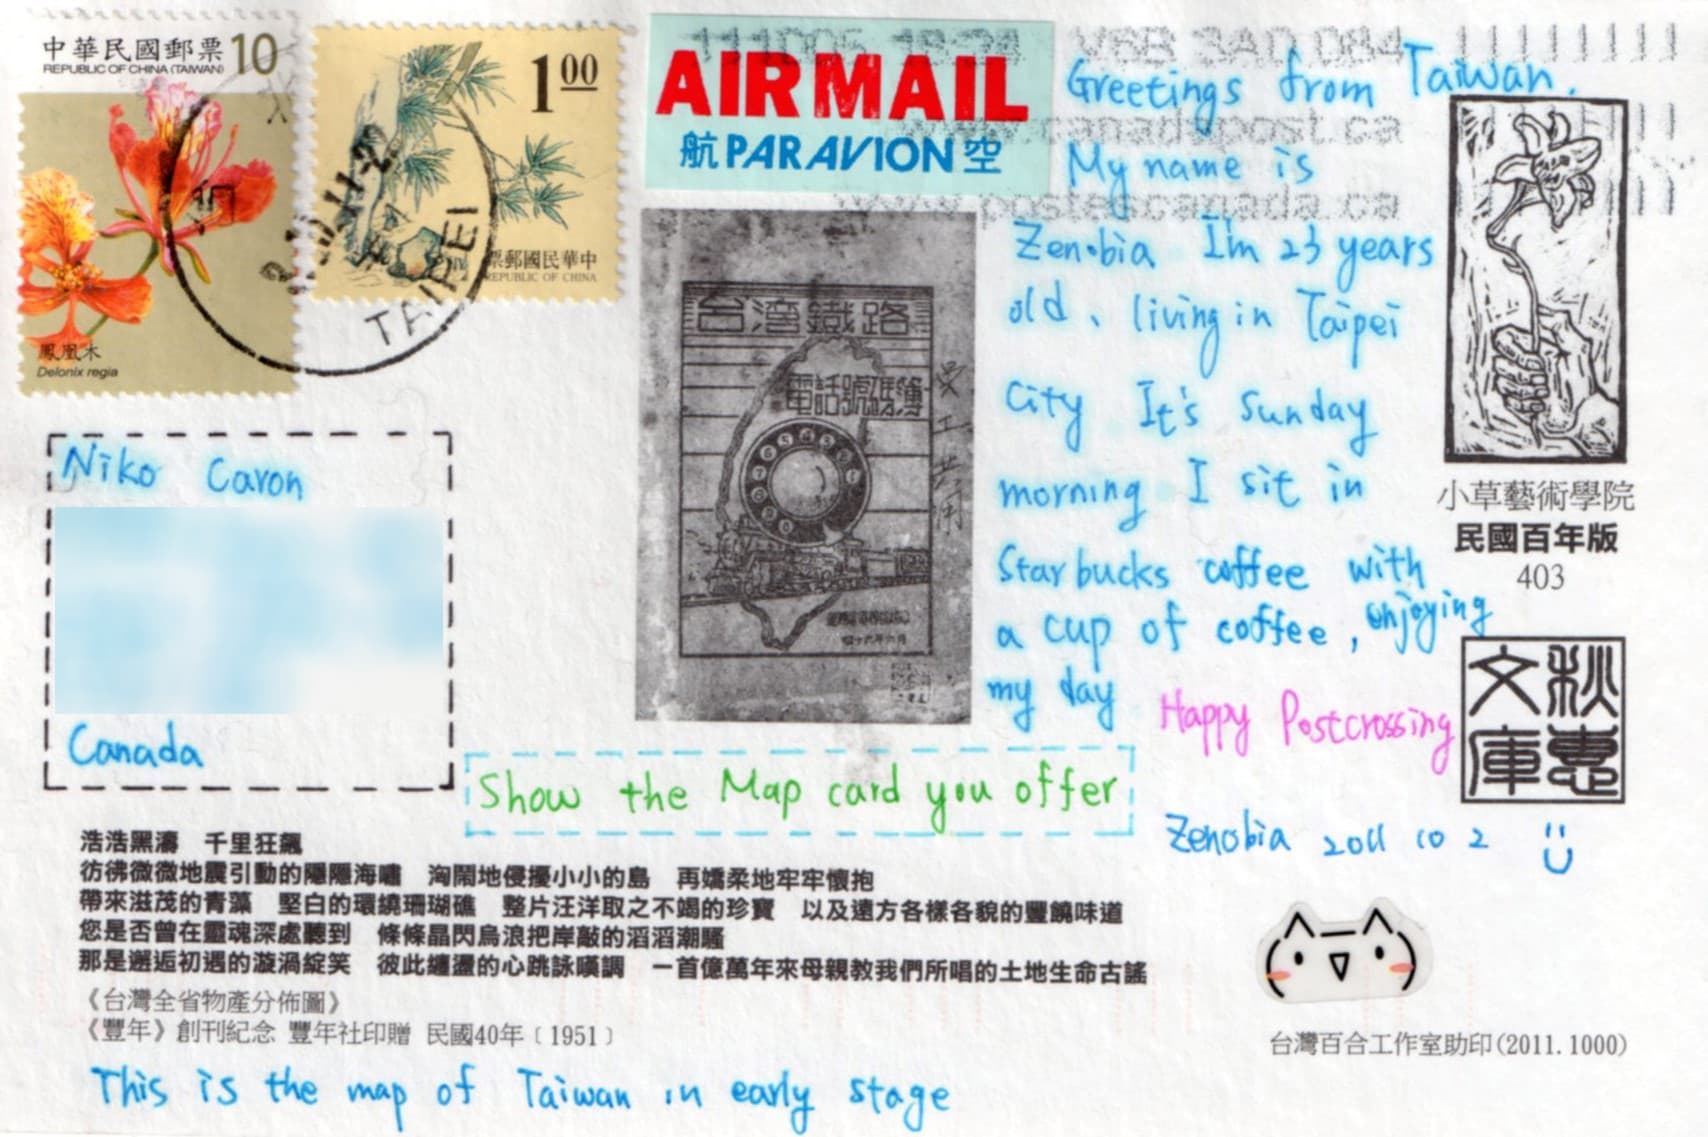 中華民國郵票 10
REPUBLIC OF CHINA (TAIWAN)
鳳凰木
Delonix regia
1.00
票郵國民華中
REPUBLIC OF CHINA
TAIPEI
AIR MAIL
航 PAR AVION 空
111005 V6B 3A0 D84
www.canadapost.ca
www.postescanada.ca
Greetings from Taiwan.
My name is
Zenobia I'm 23 years
old、living in Taipei
City It's Sunday
morning I sit in
Starbucks coffee with
a cup of coffee, enjoying
my day
Happy Postcrossing
Zenobia 2011 10 2
台灣鐵路
電話號碼簿
小草藝術學院
民國百年版
403
秋惠文庫
Niko Caron
Canada
Show the Map card you offer
浩浩黑濤 千里狂飆
彷彿微微地震引動的隱隱海嘯 洶鬧地侵擾小小的島 再嬌柔地牢牢懷抱
帶來滋茂的青藻 堅白的環繞珊瑚礁 整片汪洋取之不竭的珍寶 以及遠方各樣各貌的豐饒味道
您是否曾在靈魂深處聽到 條條晶閃烏浪把岸敲的滔滔潮騷
那是邂逅初遇的漩渦綻笑 彼此纏盪的心跳詠嘆調 一首億萬年來母親教我們所唱的土地生命古謠
《台灣全省物產分佈圖》
《豐年》創刊紀念 豐年社印贈 民國40年﹝1951﹞
台灣百合工作室助印(2011.1000)
This is the map of Taiwan in early stage